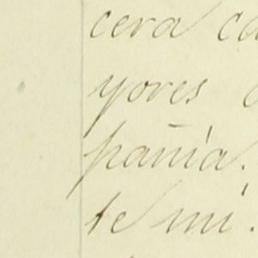 cera ca
yores
pañía.
te mi.